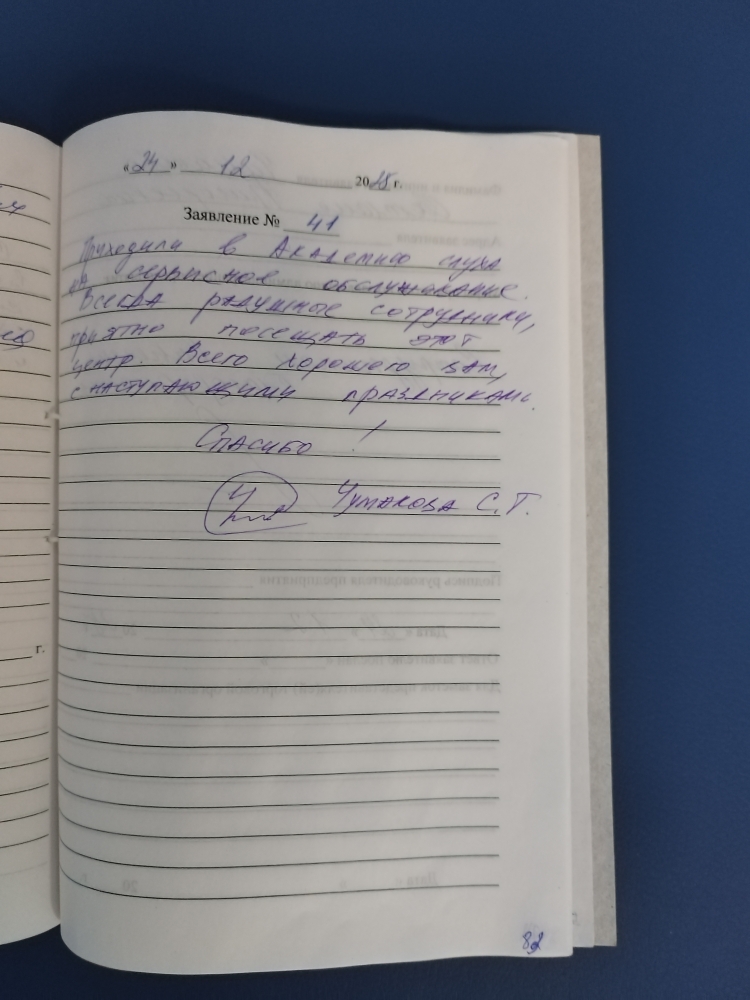 «24» 12 2025 г.
Заявление № 41
Приходили в Академию слуха
на сервисное обслуживание.
Всегда радушные сотрудники,
приятно посещать этот
центр. Всего хорошего вам,
с наступающими праздниками.
Спасибо !
Чумакова С. Т.
г.
82